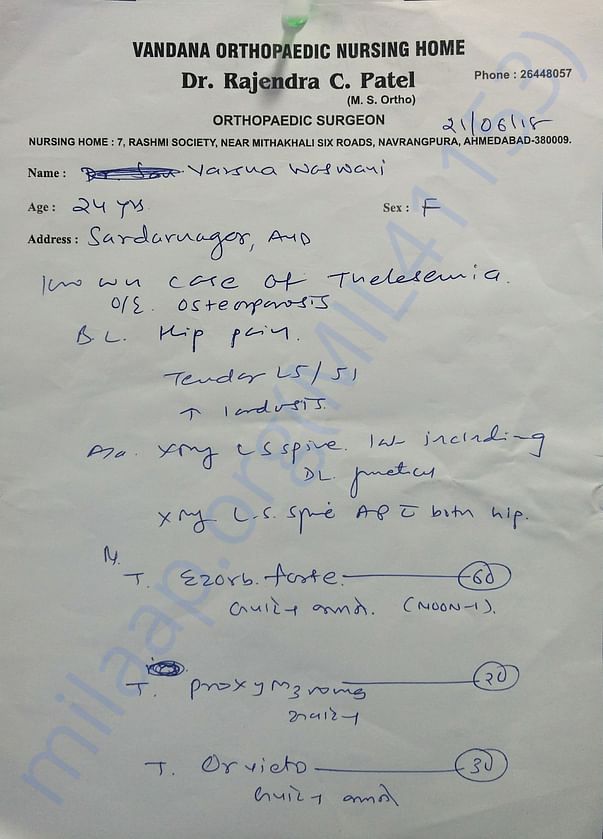 VANDANA ORTHOPAEDIC NURSING HOME
Dr. Rajendra C. Patel
Phone : 26448057
(M. S. Ortho)
ORTHOPAEDIC SURGEON
21/06/18
NURSING HOME : 7, RASHMI SOCIETY, NEAR MITHAKHALI SIX ROADS, NAVRANGPURA, AHMEDABAD-380009.
Name : Varsha Waswani
Age : 24 yrs
Sex : F
Address : Sardarnagar, AHD
Known case of Thelesemia.
O/E. Osteoporosis
B.L. Hip pain.
Tender L5/S1
↑ lordosis
Xray LS spine. lat including
DL. junction
Xray L.S. Spine AP c both hip.
T. Ezorb. forte. 60
(NOON-1).
T. 20
T. Orvieto 30
milaap.org(MIL41153)